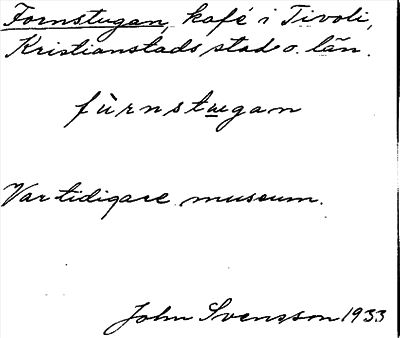 Fornstugan, kafé i Tivoli,
Kristianstads stad o. län.
fù̀rnstɯgan
Var tidigare museum.
John Svensson 1933